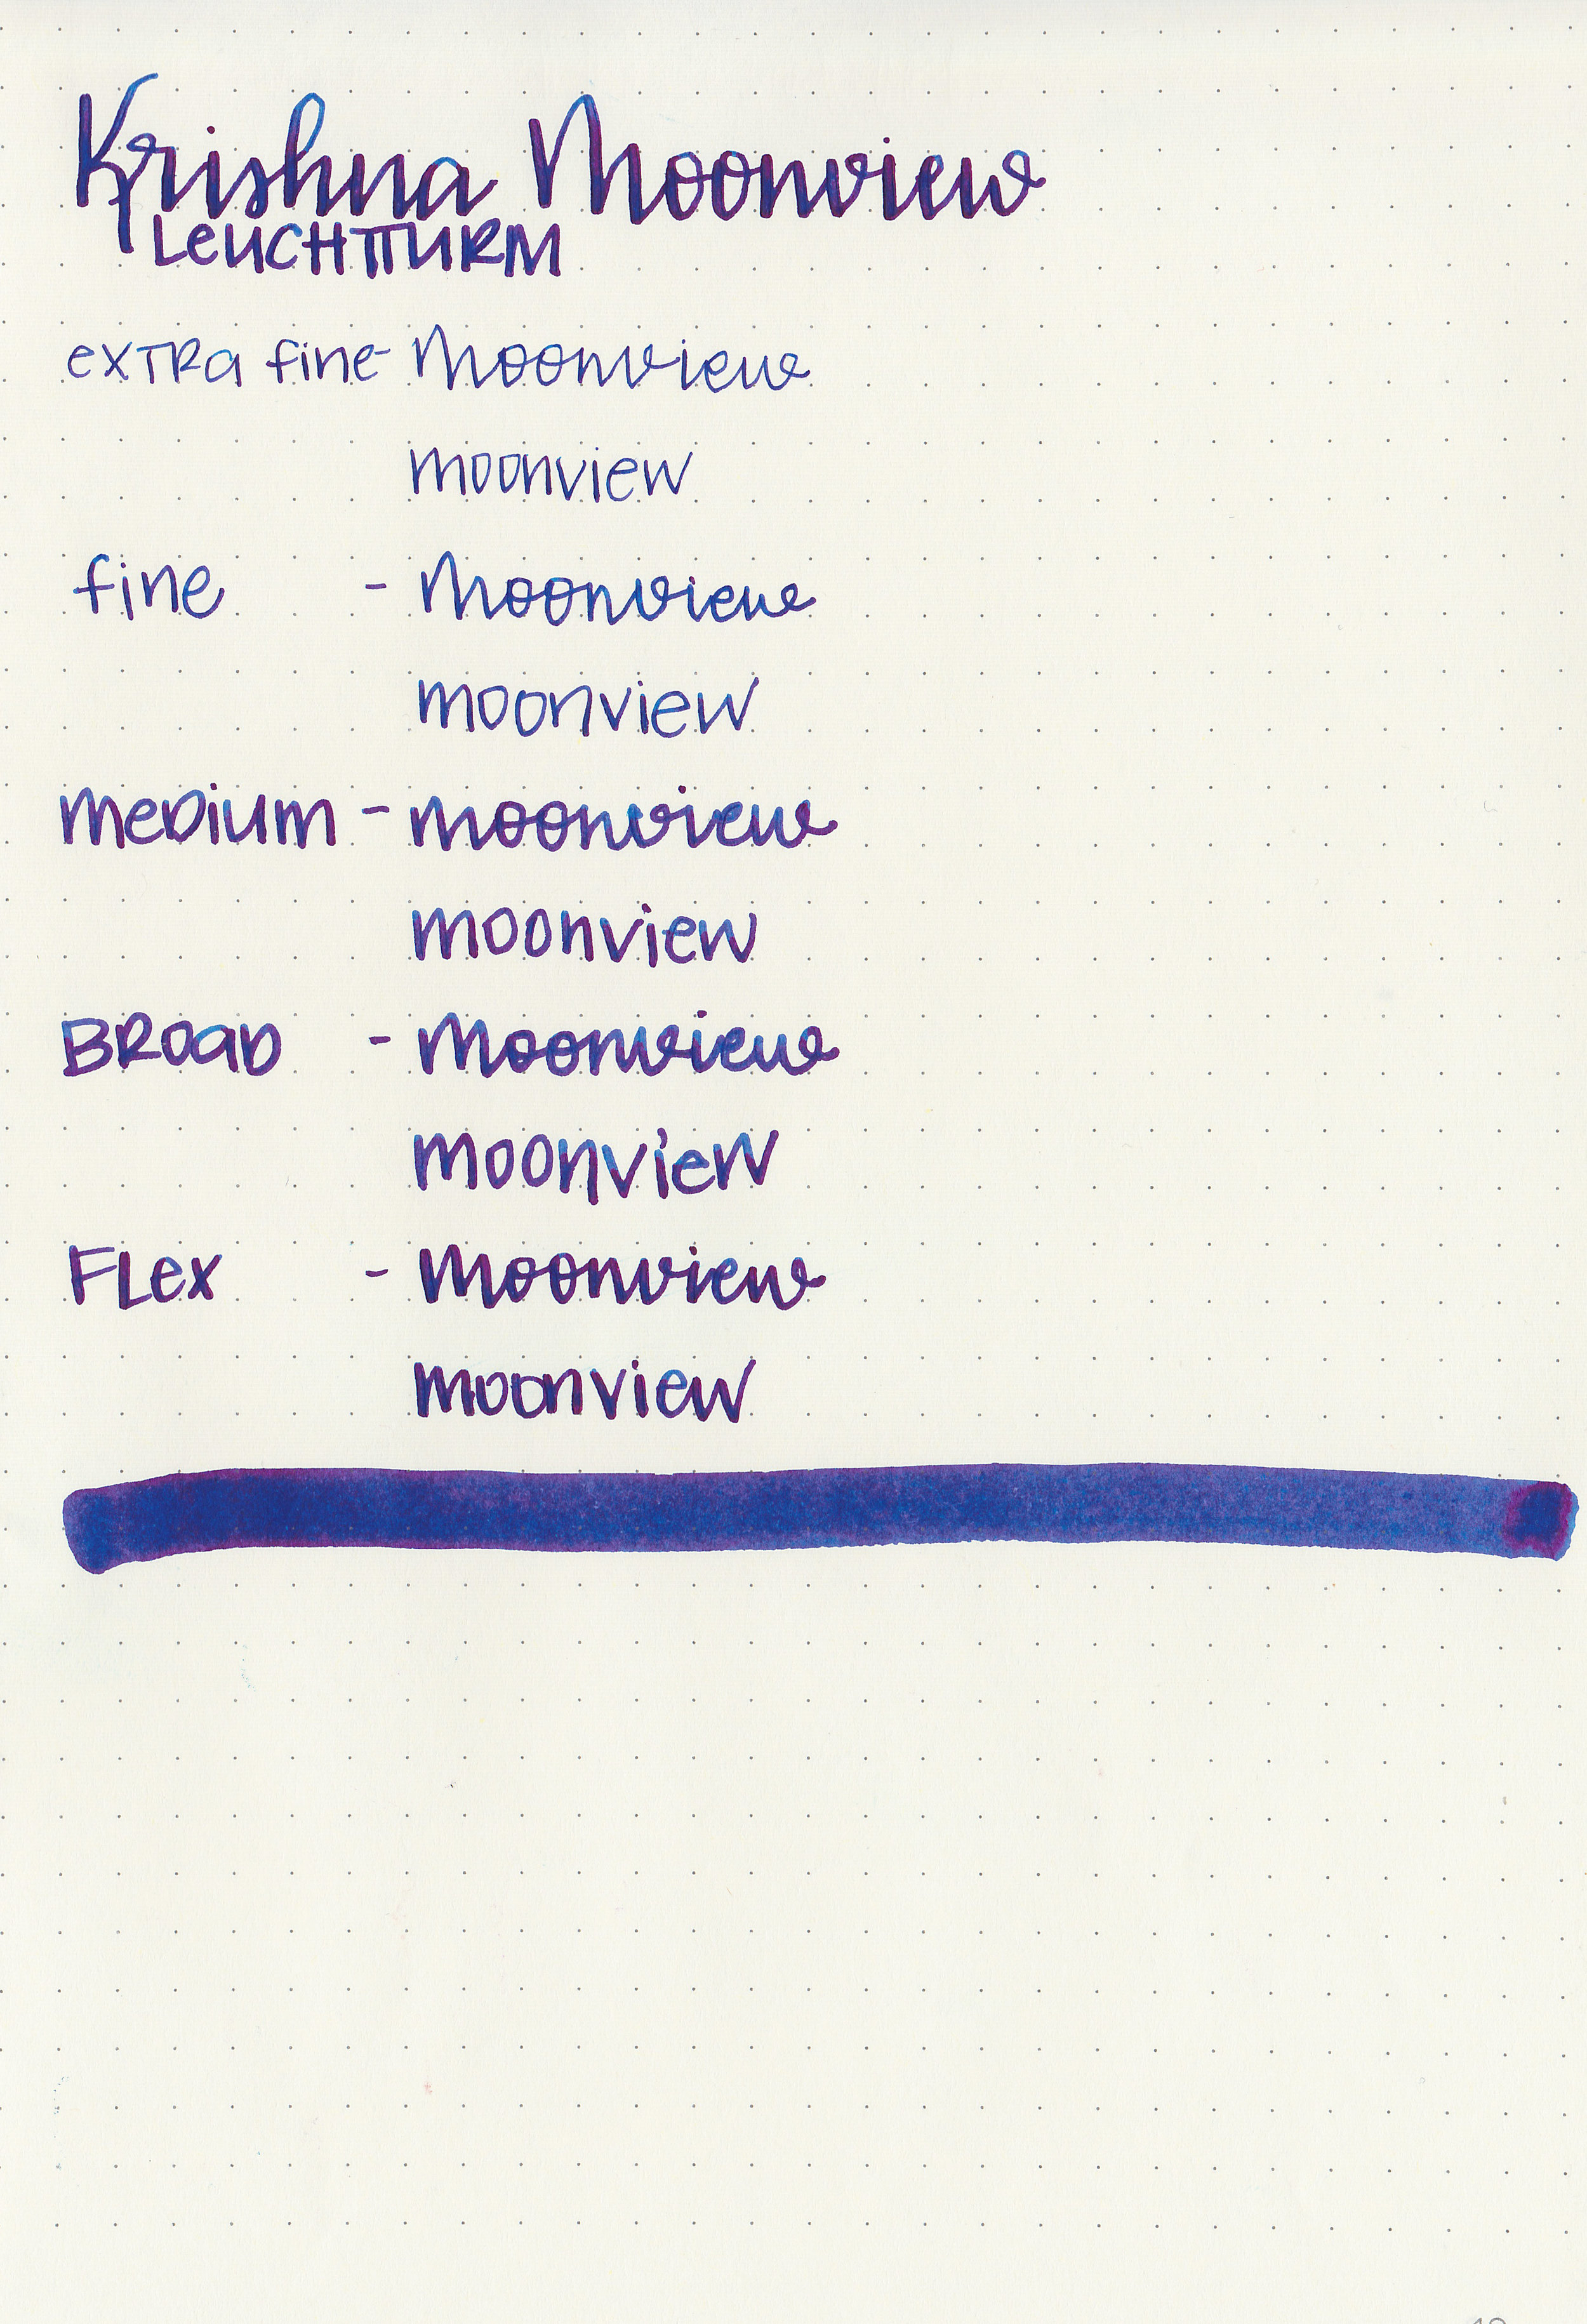 Krishna Moonview
LeUCHTTURM
exTRa fine - Moonview
moonview
fine - Moonview
moonview
meDium - moonview
moonview
BROaD - Moonview
moonview
FLex - Moonview
moonview